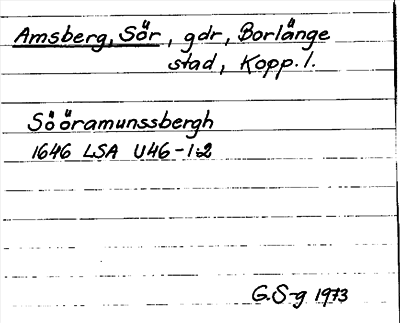 Amsberg, Sör, gdr, Borlänge
stad, Kopp. l.
Sööramunssbergh
1646 LSA U46-1:2
G.S-g 1973